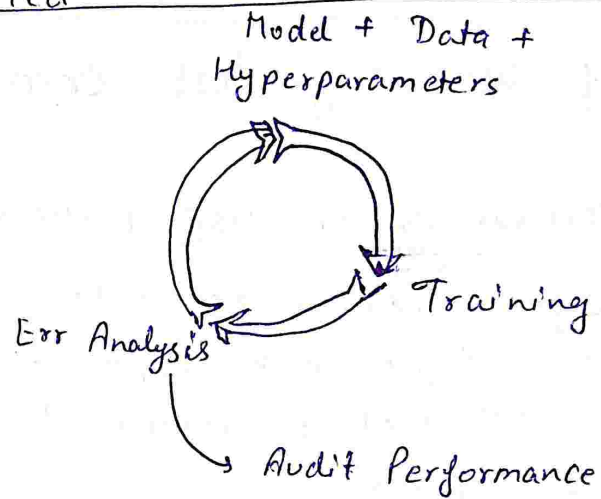 Model + Data +
Hyperparameters
Training
Err Analysis
Audit Performance